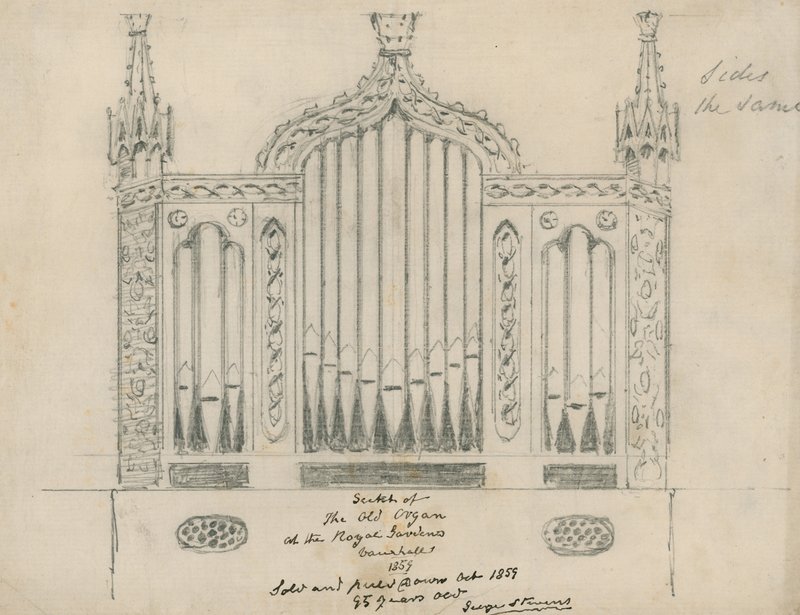 Sides
the same
Sketch of
The Old Organ
at the Royal Gardens
Vauxhall
1859
Sold and puled Down Oct 1859
95 years old
George Stevens